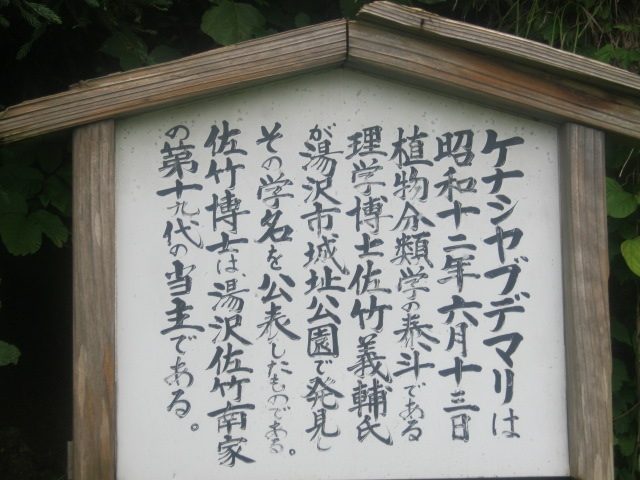 ケナシヤブデマリは
昭和十二年六月十三日
植物分類学の泰斗である
理学博士佐竹義輔氏
が湯沢市城址公園で発見し
その学名を公表したものである。
佐竹博士は湯沢佐竹南家
の第十九代の当主である。